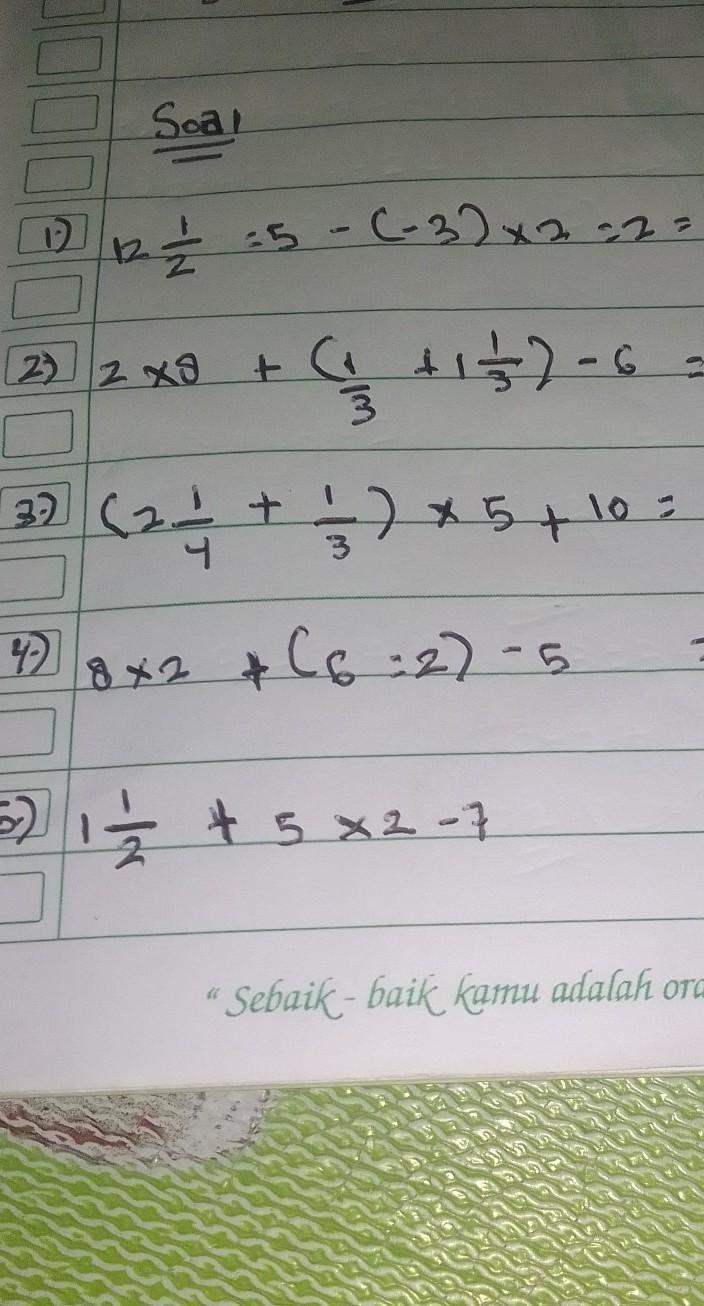 Soal
1.) 12 1/2 : 5 - (-3) x 2 : 2 =
2.) 2 x 8 + (1/3 + 1 1/3) - 6 =
3.) (2 1/4 + 1/3) x 5 + 10 =
4.) 8 x 2 + (6 : 2) - 5 =
5.) 1 1/2 + 5 x 2 - 7
“ Sebaik - baik kamu adalah